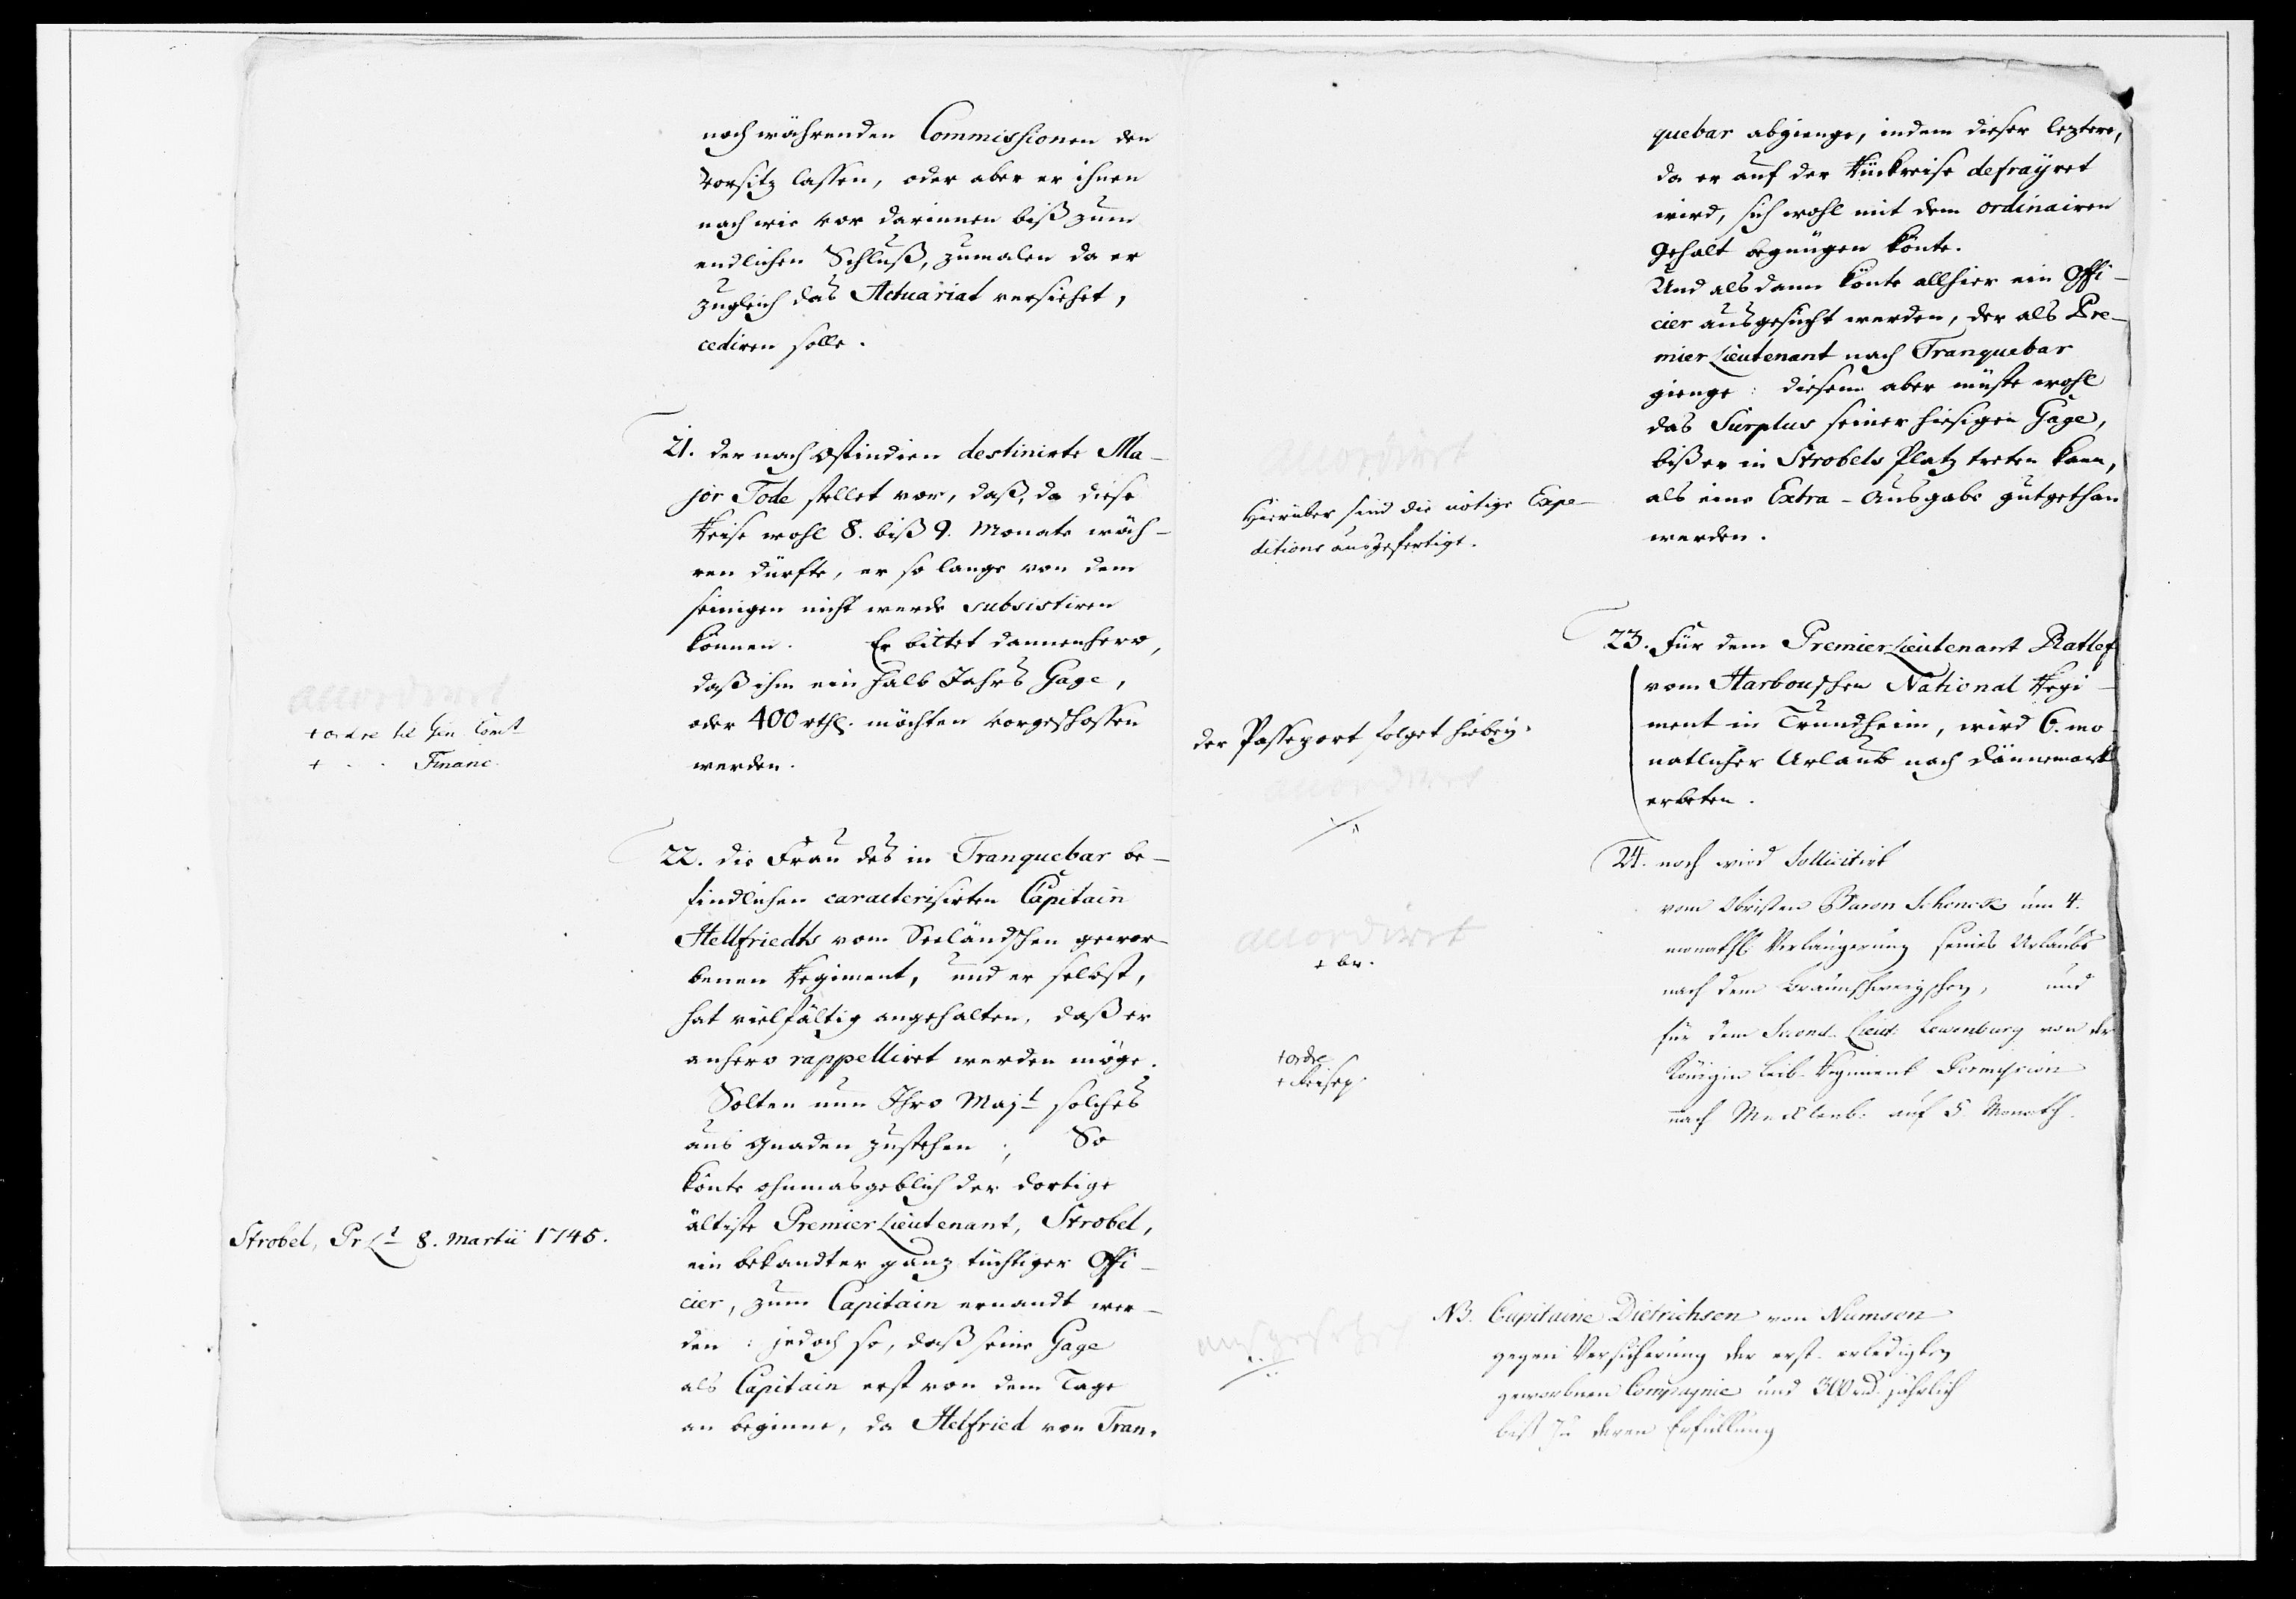 noch währenden Commissionen den
Vorsitz lassen, oder aber er ihnen
nach wie vor darinnen biß zum
endlichen Schluß, zumalen da er
zugleich das Actuariat versiehet,
cediren solle.
21. der nach Ostindien destinirte Ma-
jor Tode stellet vor, daß, da diese
Reise wohl 8. biß 9. Monate wäh-
ren dürfte, er so lange von dem
seinigen nicht werde subsistiren
können. Er bittet dannenhero,
daß ihm ein halb Jahrs Gage,
oder 400 rthl. möchten vorgeschossen
werden.
accordirt
+ ordre til Gen Com̄t
+ . . Financ.
22. die Frau des in Tranquebar be-
findlichen caracterisirten Capitain
Hellfriedts vom Seeländschen gewor-
benen Regiment, und er selbst,
hat vielfältig angehalten, daß er
anhero rappelliret werden möge.
Solten nun Ihro Majt solches
aus Gnaden zustehen; So
könte ohnmasgeblich der dortige
ältiste Premier Lieutenant, Strobel,
ein bekandter ganz tüchtiger Offi-
cier, zum Capitain ernandt wer-
den: jedoch so, daß seine Gage
als Capitain erst von dem Tage
an beginne, da Helfried von Tran-
Strobel, Pr Lt 8. Martii 1745.
quebar abgienge, indem dieser leztere,
da er auf der Rückreise defrayret
wird, sich wohl mit dem ordinairen
Gehalt begnügen könte.
Und alsdann könte allhier ein Offi-
cier ausgesucht werden, der als Pre-
mier Lieutenant nach Tranquebar
gienge: diesem aber müste wohl
das Surplus seiner hiesigen Gage,
biß er in Strobels Platz treten kann,
als eine Extra-Ausgabe gutgethan
werden.
accordirt
Hierüber sind die nötige Expe-
ditions ausgefertigt.
23. Für dem Premier Lieutenant Ratlef
vom Harbouschen National Regi-
ment in Trundheim, wird 6. mo-
natlicher Urlaub nach Dännemark
erbeten.
der Passeport folget hiebey.
accordirt
24. noch wird sollicitirt
vom Obristen Baron Schenck um 4.
monathl. Verlängerung seines Urlaubs
nach dem Braunschweigschen, und
für dem Second Lieut: Lewenburg von der
Königin Leib-Regiment Permission
nach Mecklenb: auf 5 Monath.
accordirt
+ br.
+ ordre
+ Reisep.
NB. Capitaine Dietrichsen von Numsen
gegen Versicherung der erst erledigten
geworbnen Compagnie und 300 rd. jährlich
biß zu deren Erfüllung